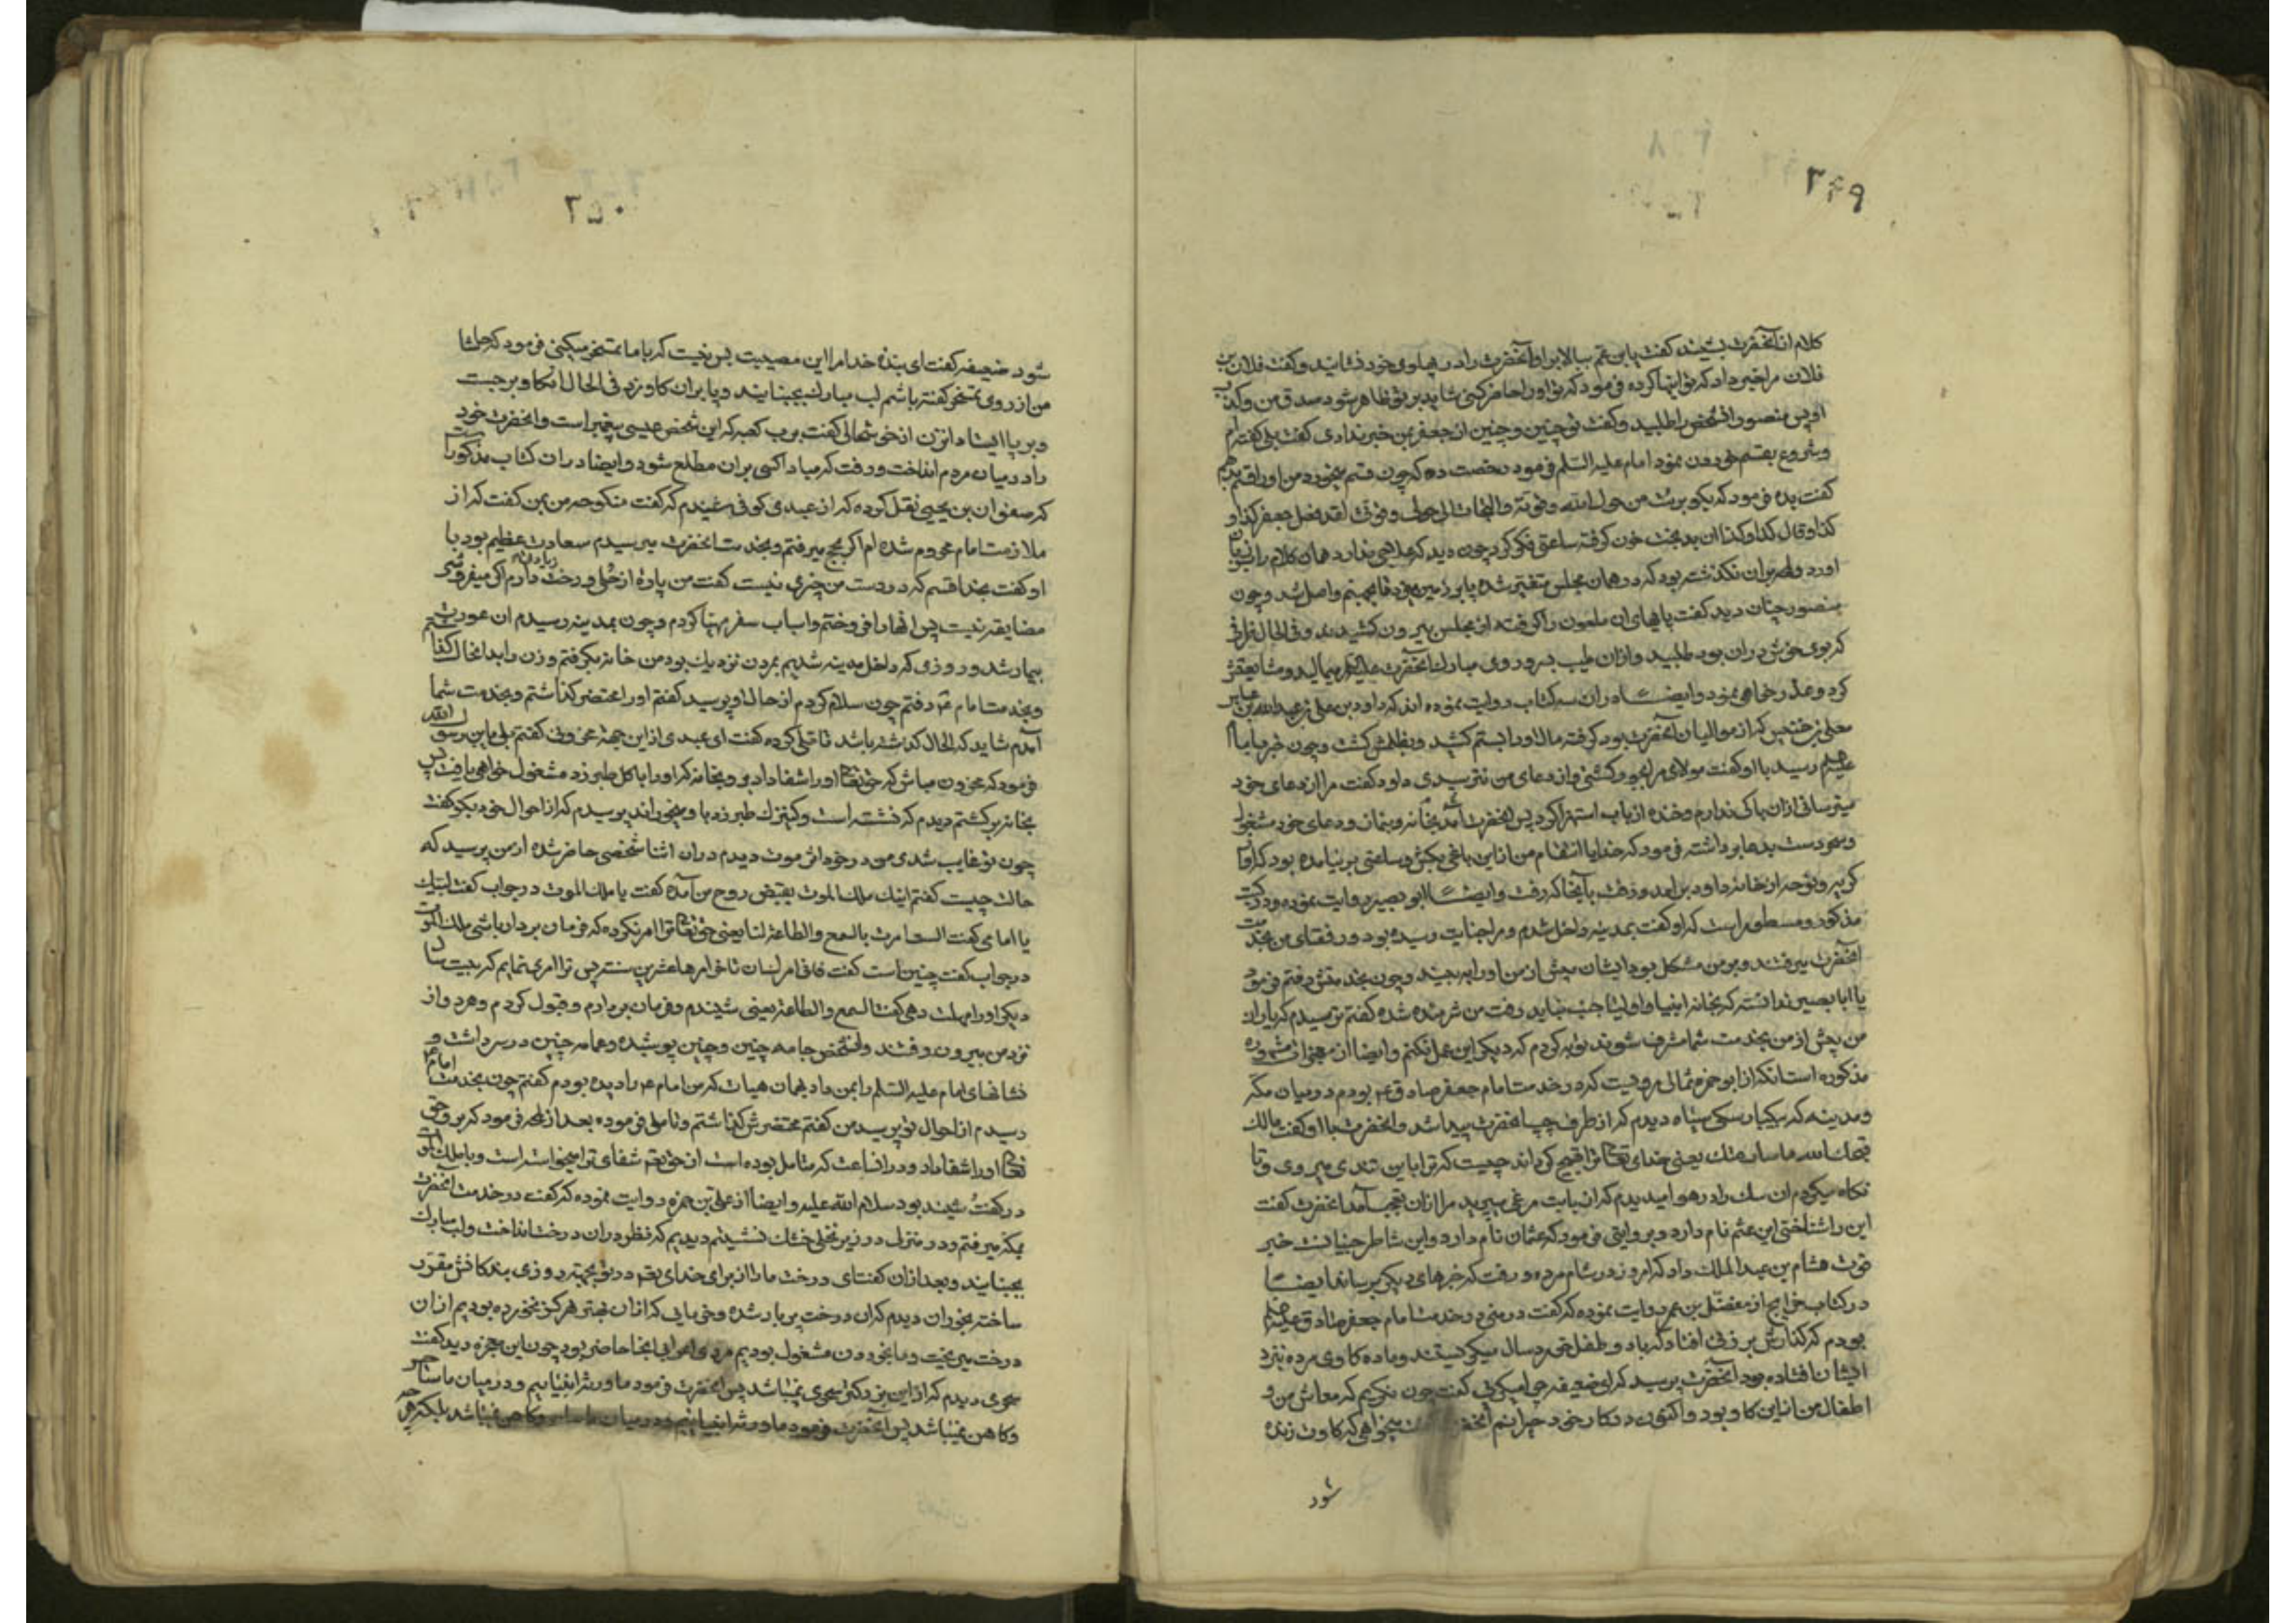 ۳۴۹
کلام از آنحضرت بشنید گفت یا بن عم بیالا برا و آنحضرت را در پهلوی خود نشانید و گفت فلان بن
فلان مرا خبر داد که تو اینها کرده فرمود که تو او را حاضر کنی شاید بر تو ظاهر شود صدق من و کذب
او پس منصور آن شخص را طلبید و گفت تو چنین و چنین از جعفر بمن خبر ندادی گفت بلی گفته ام
و شروع بقسم خوردن نمود امام علیه السلم فرمود رخصت ده که چون قسم میخورد من او را قسم بدهم
گفت بده فرمود که بگو برئت من حول الله و قوته والتجات الی حولی و قوتی لقد فعل جعفر کذا و
کذا و قال کذا و کذا آن بدبخت خون گرفته ساعتی فکر کرد چون دید که علاجی ندارد همان کلام را بزبان
آورد و لمحه بران نگذشته بود که در همان مجلس متغیر شده پا بر زمین زد فجهنم واصل شد و چون
منصور چنان دید گفت پاهای آن ملعون را گرفته از مجلس بیرون کشیدند و فی الحال ظرفی
که بوی خوش دران بود طلبید و ازان طیب بسر و روی مبارک آنحضرت علیه السلم میمالید و مشایعتش
کرد و عذرخواهی نمود و ایضا در ان سه کتاب روایت نموده اند که داود بن علی بن عبدالله بن عباس
معلی بن خنیس که از موالیان آنحضرت بود گرفته مال او را بستم کشید و بظلمش کشت و چون خبر بامام
علیه السلم رسید باو گفت مولای مرا چو کشتی و از دعای من نترسیدی داود گفت مرا از دعای خود
میترسانی ازان باکی ندارم و خنده از باب استهزا کرد پس آنحضرت آمد بخانه و بنماز و دعای خود مشغول
و سحر دست بدعا برداشته فرمود که خدایا انتقام من از این باغی بکش و ساعتی برنیامده بود که آواز
گریه و نوحه از خانه داود برآمد و رفت بآنجا که رفت و ایضا ابو بصیر روایت نموده و در کتب
مذکور و مسطور است که او گفت بمدینه داخل شدم و مرا جنایت رسیده بود و رفقای من بخدمت
آنحضرت میرفتند و بر من مشکل بود ایشان پیش از من او را ببینند و چون بخدمتش رفتم فرمود
یا ابا بصیر ندانسته که بخانه انبیا و اولیا جنب نباید رفت من شرمنده شده گفتم ترسیدم که یاران
من پیش از من بخدمت شما مشرف شوند توبه کردم که دیگر این عمل نکنم و ایضا از معجزات مشهوره
مذکوره است انکه از ابو حمزه ثمالی مرویست که در خدمت امام جعفر صادق ع بودم در میان مکه
و مدینه که بیکبار سگی سیاه دیدم که از طرف چپ آنحضرت پیدا شد و آنحضرت باو گفت مالک
قبحک الله ما سارعتک یعنی خدای تعالی ترا قبیح گرداند چیست که ترا باین تندی میروی و تا
نگاه میکردم ان سک را در هوا میدیدم که از بابت مرغی میپرید مرا ازان تعجب آمد آنحضرت گفت
این را شناختی این عثم نام دارد و بروایتی فرمود که عثمان نام دارد و این شاطر جنیانست خبر
فوت هشام بن عبدالملک داد که امروز در شام مرده و رفت که خبرهای دیگر برساند ایضا
در کتاب خرایج از مفضل بن عمر روایت نموده که گفت در منی در خدمت امام جعفر صادق علیه السلم
بودم که گذارش بر زنی افتاد که باد و طفل خردسال میگریستند و ماده گاوی مرده نزد
ایشان افتاده بود آنحضرت پرسید که ای ضعیفه چرا میگریی گفت چون نگریم که معاش من و
اطفال من از این گاو بود و اکنون در کار خود حیرانم آنحضرت میخواهی که گاوت زنده
شود
۳۵۰
شود ضعیفه گفت ای بنده خدا مرا این مصیبت بس نیست که با ما تمسخر میکنی فرمود که حاشا
من از روی تمسخر گفته باشم لب مبارک بجنبانید و پا بران گاو زد فی الحال آن گاو برجست
و بر پا ایستاد آن زن از خوشحالی گفت برب کعبه که این شخص عیسی پیغمبر است و آنحضرت خود
را در میان مردم انداخت و رفت که مبادا کسی بران مطلع شود و ایضا در ان کتاب مذکور است
که صفوان بن یحیی نقل کرده که از عبدی کوفی شنیدم که گفت منکوحه من بمن گفت که از
ملازمت امام محروم شده ام اگر بحج میرفتم و بخدمت آنحضرت میرسیدم سعادت عظیم بود با
او گفت بخدا قسم که در دست من چیزی نیست گفت من پارهٔ از حلی و رخت زیادتی دارم اگر میفروشی
مضایقه نیست پس آنها را فروختم و اسباب سفر مهیا کردم و چون بمدینه رسیدم ان عورت
بیمار شد و روزی که داخل مدینه شدیم بمردن نزدیک بود من خانه بگرفتم و زن را بدانحال گذاشتم
و بخدمت امام ع رفتم چون سلام کردم از حال او پرسید گفتم او را محتضر گذاشتم و بخدمت شما
آمدم شاید که الحال گذشته باشد تاملی کرده گفت ای عبدی از این جهة محزونی گفتم بلی یا بن رسول الله
فرمود که محزون مباش که حق تعالی او را شفا داد برو بخانه که او را با کل طبرزد مشغول خواهی یافت پس
بخانه برگشتم دیدم که نشسته است و کنیزک طبرزد باو میخوراند پرسیدم که از احوال خود بگو گفت
چون تو غایب شدی من در خود اثر موت دیدم دران اثنا شخصی حاضر شده از من پرسید که
حالت چیست گفتم اینک ملک الموت بقبض روح من آمده گفت یا ملک الموت در جواب گفت لبیک
یا امامی گفت الست امرت بالسمع والطاعة لنا یعنی حق تعالی ترا امر نکرده که فرمان بردار باشی ملک الموت
در جواب گفت چنین است گفت فانی امر لسان تاخر امرها عشرین سنة پس ترا امری نمایم که بیست سال
دیگر او را مهلت دهی گفت السمع والطاعة یعنی شنیدم و فرمان بردارم و قبول کردم و هر دو از
نزد من بیرون رفتند و آنشخص جامه چنین و چنین پوشیده و عمامه چنین در سر داشت و
نشانهای امام علیه السلم را بمن داد بهمان هیات که من امام ع را دیده بودم گفتم چون بخدمت امام ع
رسیدم از احوال تو پرسید من گفتم محتضرش گذاشتم و تاملی فرموده بعد از لمحه فرمود که برو حق
تعالی او را شفا داد و در انساعت که متامل بوده است از حق تعالی شفای ترا میخواسته است و با ملک الموت
در گفت و شنید بود سلام الله علیه و ایضا از علی بن حمزه روایت نموده که گفت در خدمت آنحضرت
بمکه میرفتم و در منزلی در زیر نخلی خشک نشستیم دیدیم که نظر دران درخت انداخت و لب مبارک
بجنبانید و بعد ازان گفت ای درخت ما را از برای خدای تعالی در تو بجهة روزی بندگانش مقرر
ساخته بخوران دیدم که ان درخت پر بار شده و خرمایی که ازان بهتر هرگز نخورده بودیم ازان
درخت میریخت و ما بخوردن مشغول بودیم مردی اعرابی آنجا حاضر بود چون این معجزه دید گفت
سحری دیدم که از این بزرگتر سحری نمیباشد پس آنحضرت فرمود ما ورثه انبیاییم و در میان ما ساحر
و کاهن نمیباشد پس آنحضرت فرمود ما ورثه انبیاییم و در میان ما ساحر و کاهن نمیباشد بلکه هر